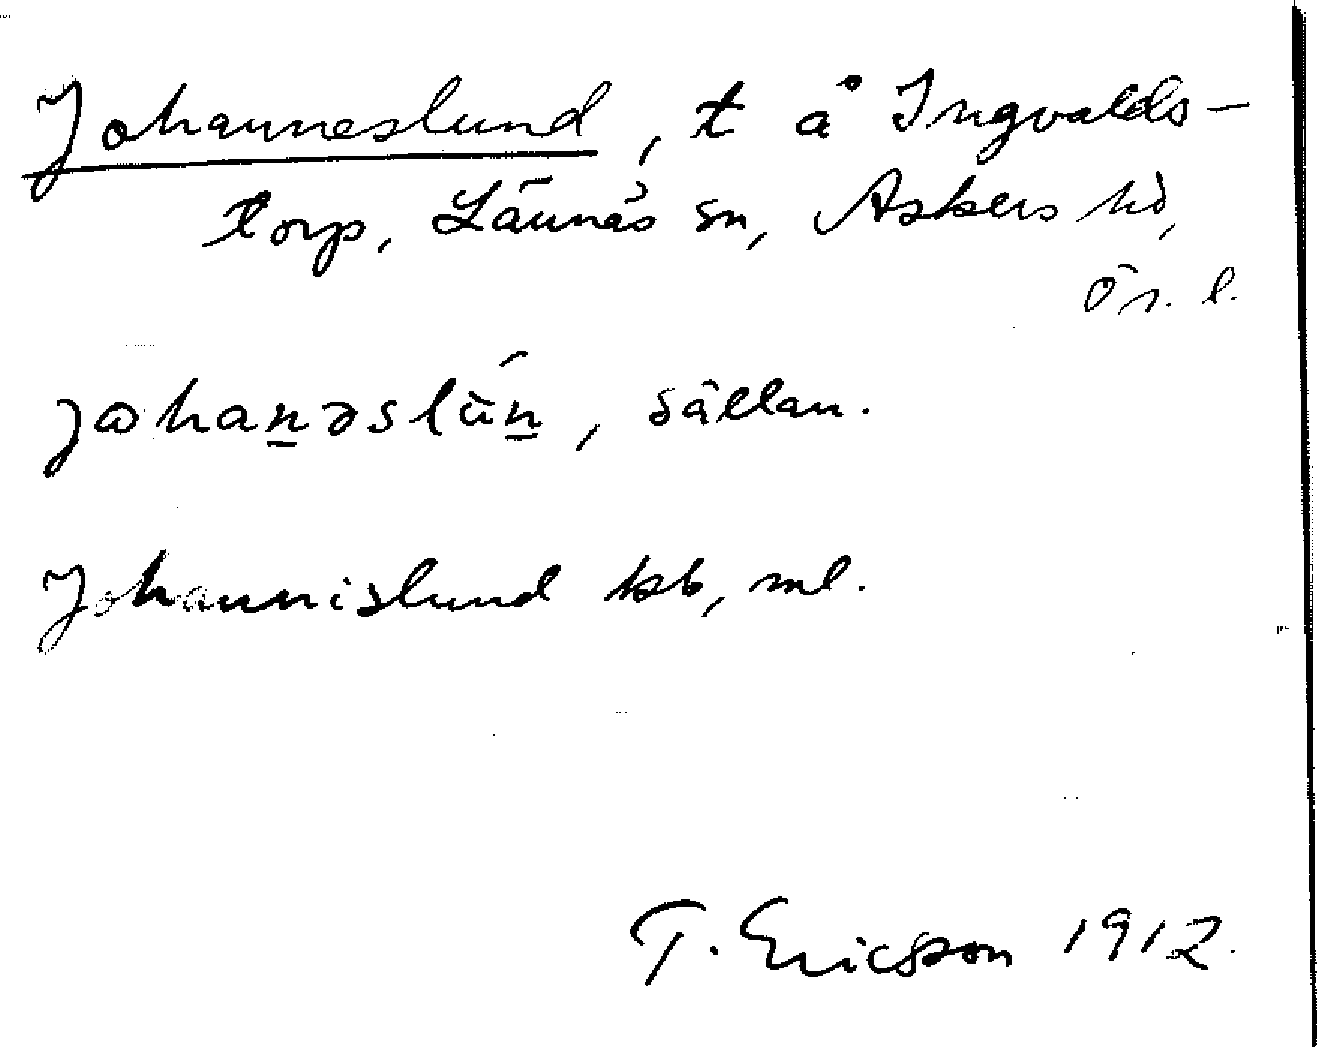 Johanneslund, t å Ingvalds-
torp, Lännäs sn, Askers hd,
Ör. l.
jωhan̲əslùn̲, sällan.
Johannislund kb, ml.
T. Ericsson 1912.